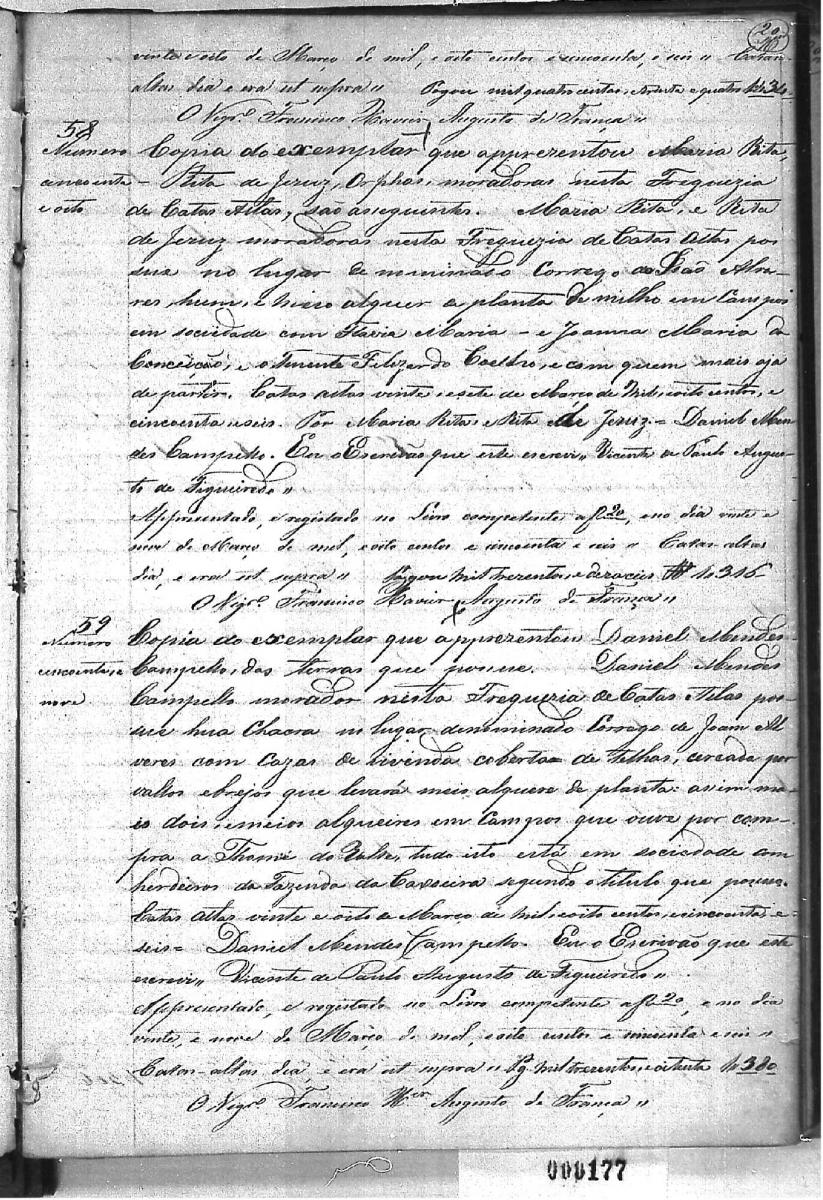 20
vinte e oito de Março de mil, e oito centos e cincoenta, e seis " Catas-
altas dia e era ut supra " Pagou mil quatro centos, e quatro
O Vigr.º Francisco Xavier Augusto de França "
58
Numero
cincoenta
e oito
Copia do exemplar que apprezentou Maria Rita,
- Rita de Jezuz, Orphas, moradoras nesta Freguezia
de Catas Altas, são as seguentes. Maria Rita, e Rita
de Jezuz moradoras nesta Freguezia de Catas Altas pos
sue no lugar de meninado Corrego do João Alva-
res, hum, e meio alquer de planta de milho em Campos
em sociedade com Flavia Maria - e Joanna Maria da
Conceição, e o Tenente Felizardo Coelho, e com quem mais aja
de partir. Catas Altas vinte, e sete de Marco de Mil, e oito centos, e
cincoenta e seis. Por Maria Rita, e Rita de Jezuz = Daniel Men-
des Campello. Eu o Escrivão que este escrevi " Vicente de Paulo Augus-
to de Figueiredo "
Appresentado, e registado no Livro competente a fl 20, e no dia vinte e
nove de Março de mil, e oito centos e cincoenta e seis " Catas-altas
dia, e era ut supra " Pagou mil trezentos, e dezaceis 1$316
O Vigr.º Francisco Xavier Augusto de França "
59
Numero
cincoenta, e
nove
Copia do exemplar que apprezentou Daniel Mendes
Campello, das terras que posue. Daniel Mendes
Campello morador nesta Freguezia de Catas Altas pos-
sue hua Chacra no lugar denominado Corrego de Joam Al
veres com Cazas de vivenda coberta de telhas, cercada por
vallos e brejos que levará meio alquere de planta: asim ma-
is dois, e meios alqueires em Campos que ouve por com-
pra a Thomé do Valle, tudo isto está em sociedade com
herdeiros da Fazenda da segundo o titulo que posue.
Catas Altas vinte e oito de Março de mil, e oito centos, e cincoenta e
seis = Daniel Mendes Campello. Eu o Escrivão que este
escrevi " Vicente de Paulo Augusto de Figueiredo "
Appresentado, e registado no Livro competente a fl 20, e no dia
vinte, e nove de Março de mil, e oito centos e cincoenta e seis "
Catas-altas dia, e era ut supra " Pg. mil trezentos, e oitenta 1$380
O Vigr.º Francisco X.er Augusto de França "
000177